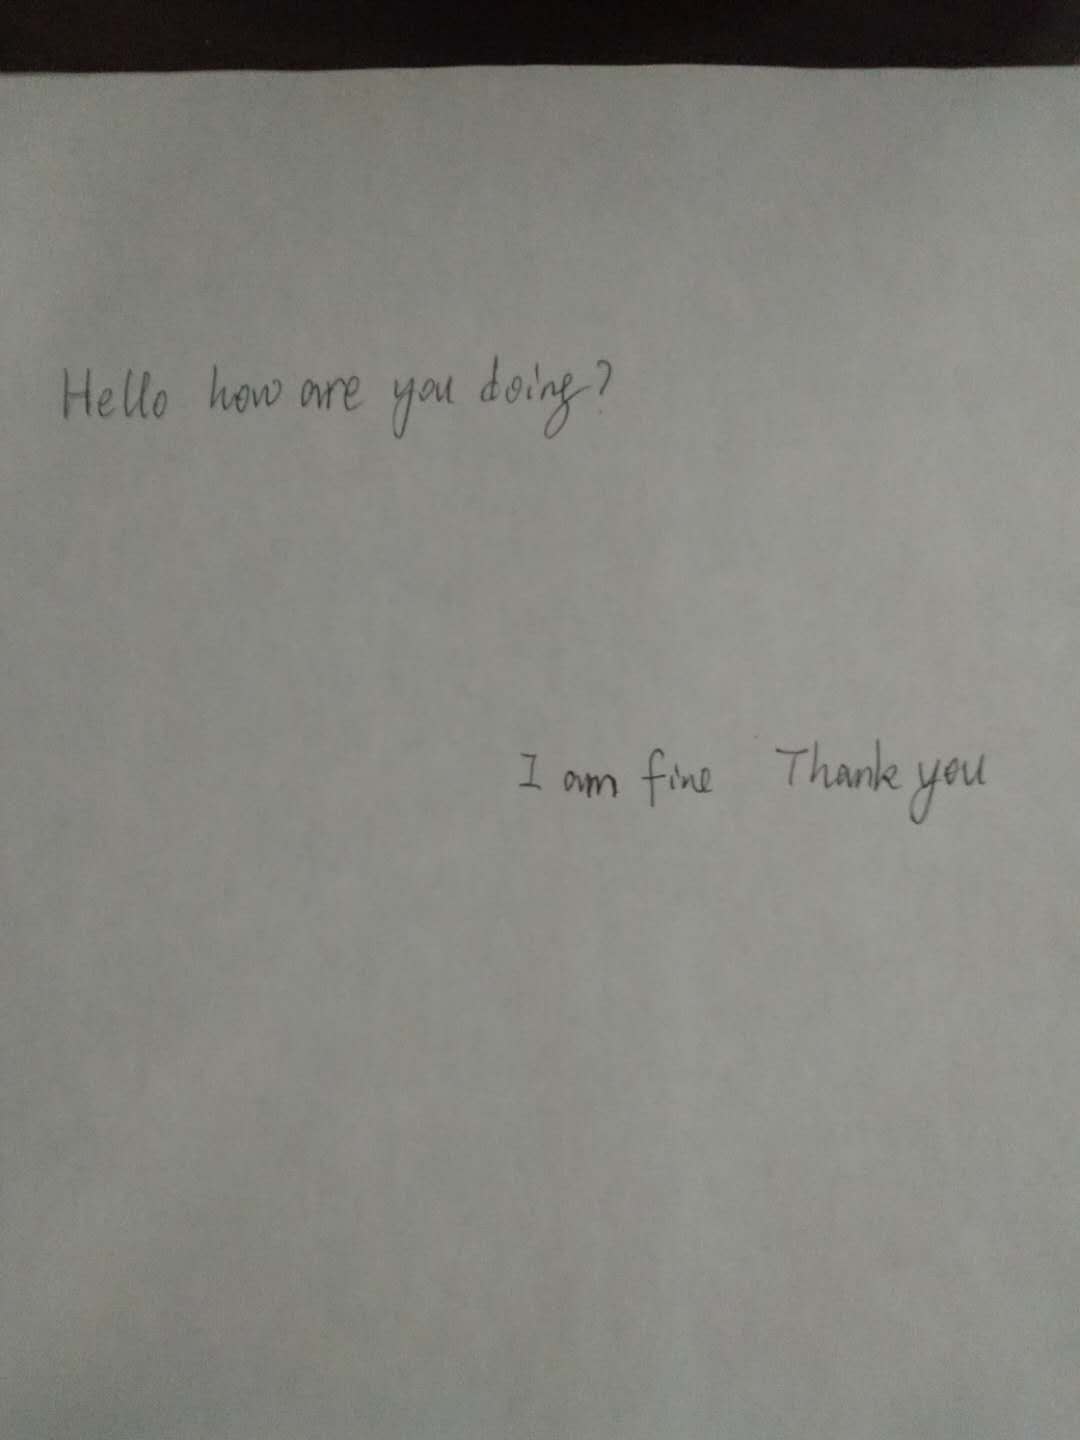 Hello how are you doing?
I am fine Thank you